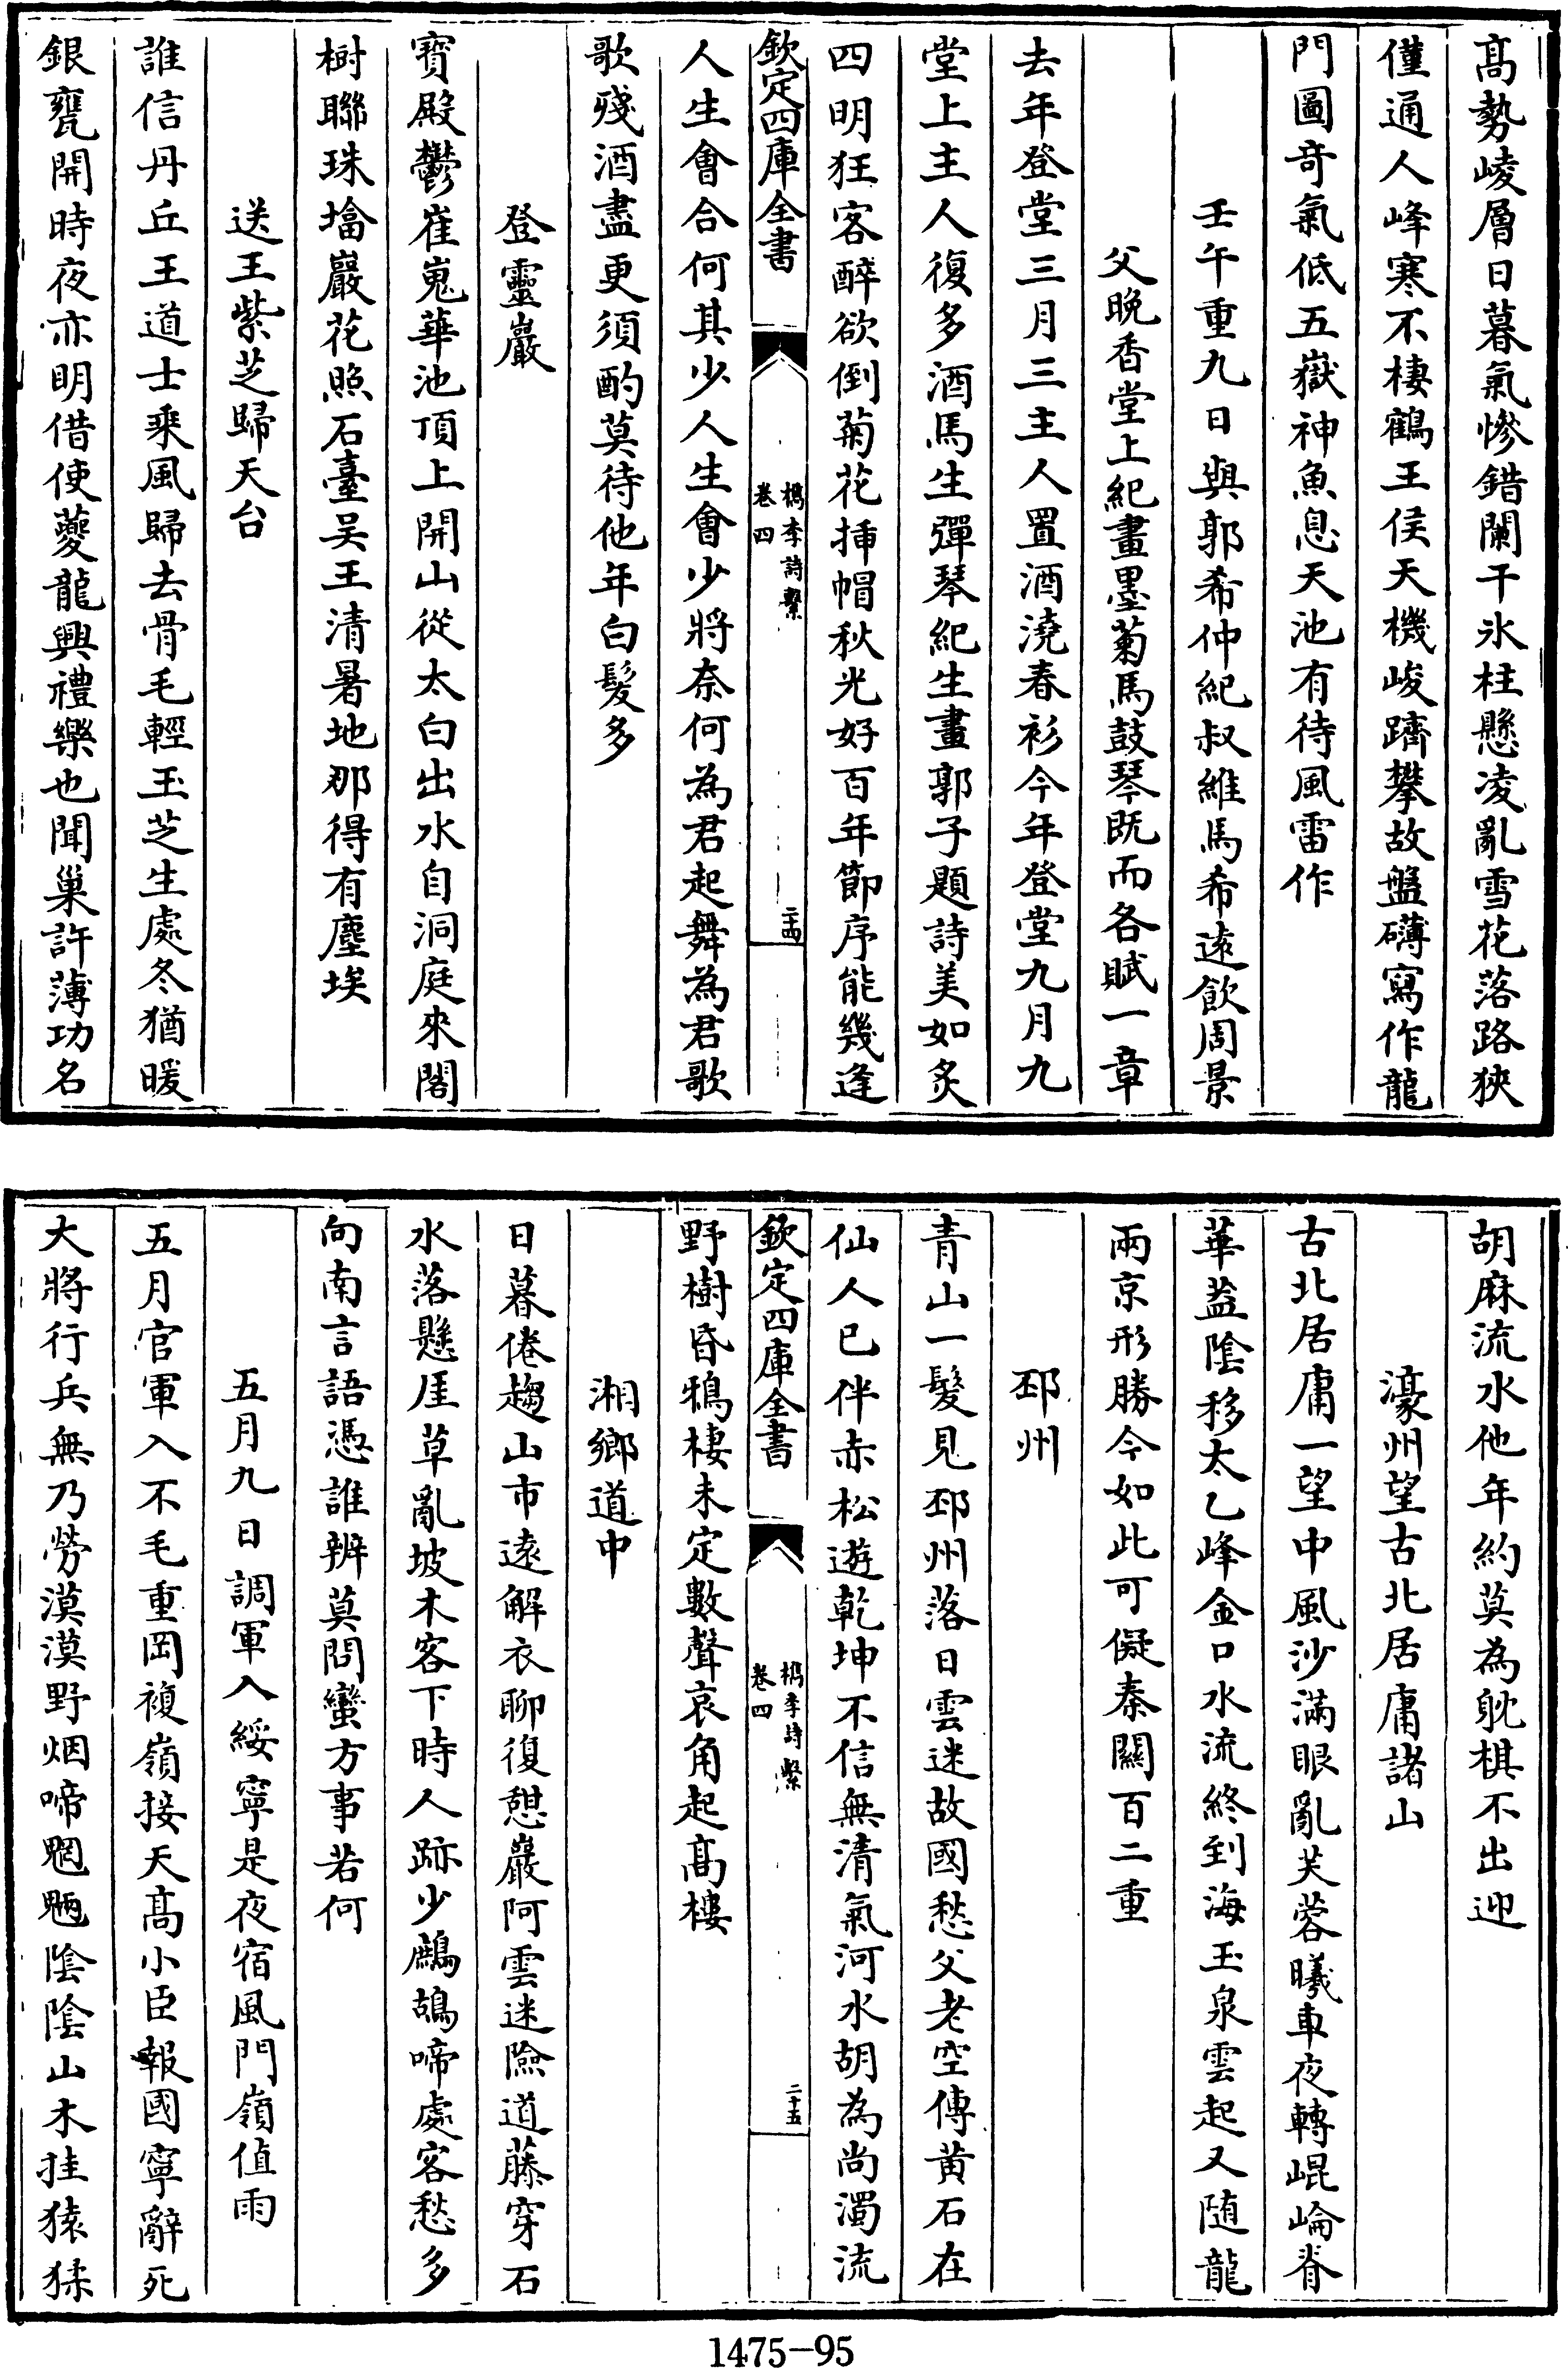 高勢崚層日暮氣慘錯闌干氷柱懸凌亂雪花落路狹
僅通人峰寒不棲鶴王侯天機峻躋攀故盤礴寫作龍
門圖奇氣低五嶽神魚息天池有待風雷作
壬午重九日與郭希仲紀叔維馬希遠飲周景
父晚香堂上紀畫墨菊馬鼓琴既而各賦一章
去年登堂三月三主人置酒澆春衫今年登堂九月九
堂上主人復多酒馬生彈琴紀生畫郭子題詩美如炙
四明狂客醉欲倒菊花揷帽秋光好百年節序能幾逢
欽定四庫全書
檇李詩繫
卷四
二十四
人生會合何其少人生會少將奈何為君起舞為君歌
歌殘酒盡更須酌莫待他年白髮多
登靈巖
寶殿鬱崔嵬華池頂上開山從太白出水自洞庭來閣
樹聯珠壒巖花照石臺吴王清暑地那得有塵埃
送王紫芝歸天台
誰信丹丘王道士乘風歸去骨毛輕玉芝生處冬猶暖
銀甕開時夜亦明借使夔龍興禮樂也聞巢許薄功名
胡麻流水他年約莫為躭棋不出迎
濠州望古北居庸諸山
古北居庸一望中風沙滿眼亂芙蓉曦車夜轉崐崘脊
華葢陰移太乙峰金口水流終到海玉泉雲起又随龍
兩京形勝今如此可儗秦關百二重
邳州
青山一髮見邳州落日雲迷故國愁父老空傳黄石在
仙人已伴赤松遊乾坤不信無清氣河水胡為尚濁流
欽定四庫全書
檇李詩繫
卷四
二十五
野樹昏鴉棲未定數聲哀角起高樓
湘鄉道中
日暮倦趨山市遠解衣聊復憇巖阿雲迷險道藤穿石
水落懸厓草亂坡木客下時人跡少鷓鴣啼處客愁多
向南言語憑誰辨莫問蠻方事若何
五月九日調軍入綏寧是夜宿風門嶺值雨
五月官軍入不毛重岡複嶺接天高小臣報國寧辭死
大將行兵無乃勞漠漠野烟啼魍魎陰陰山木挂猿猱
1475-95